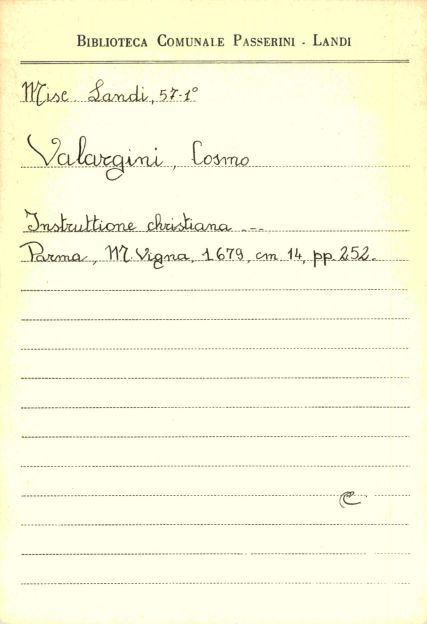 BIBLIOTECA COMUNALE PASSERINI - LANDI
Misc Landi, 57-1°
Valargini, Cosmo
Instruttione christiana ---
Parma, M. Vigna, 1679, cm 14, pp. 252.
C